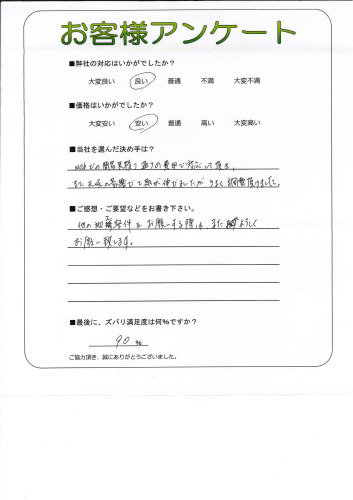 お客様アンケート
■弊社の対応はいかがでしたか?
大変良い 良い 普通 不満 大変不満
■価格はいかがでしたか?
大変安い 安い 普通 高い 大変高い
■当社を選んだ決め手は?
webでの簡易見積り通りの費用で対応して頂き、
また天候の影響で工期が伸びましたがうまく調整頂けました。
■ご感想・ご要望などをお書き下さい。
他の 案件をお願いする際は、また よろしく
お願い致します。
■最後に、ズバリ満足度は何%ですか?
90 %
ご協力頂き、誠にありがとうございました。